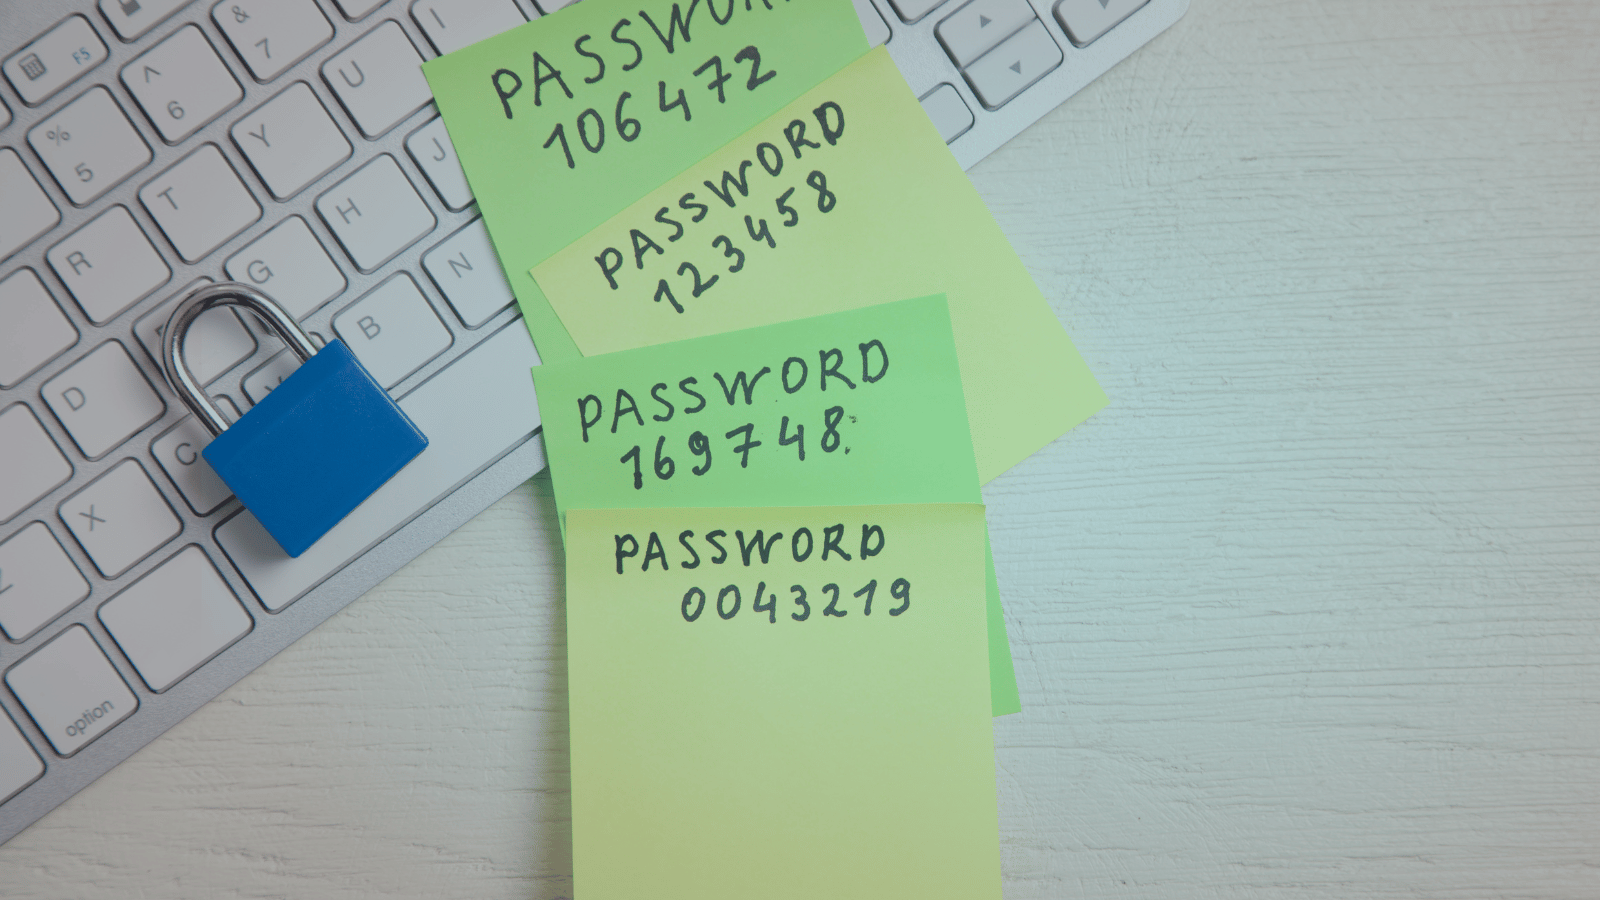 PASSWOR
106472
PASSWORD
123458
PASSWORD
169748.
PASSWORD
0043219
F5
& 7
^ 6
% 5
I
U
Y
T
R
J
H
G
D
N
B
C
X
option